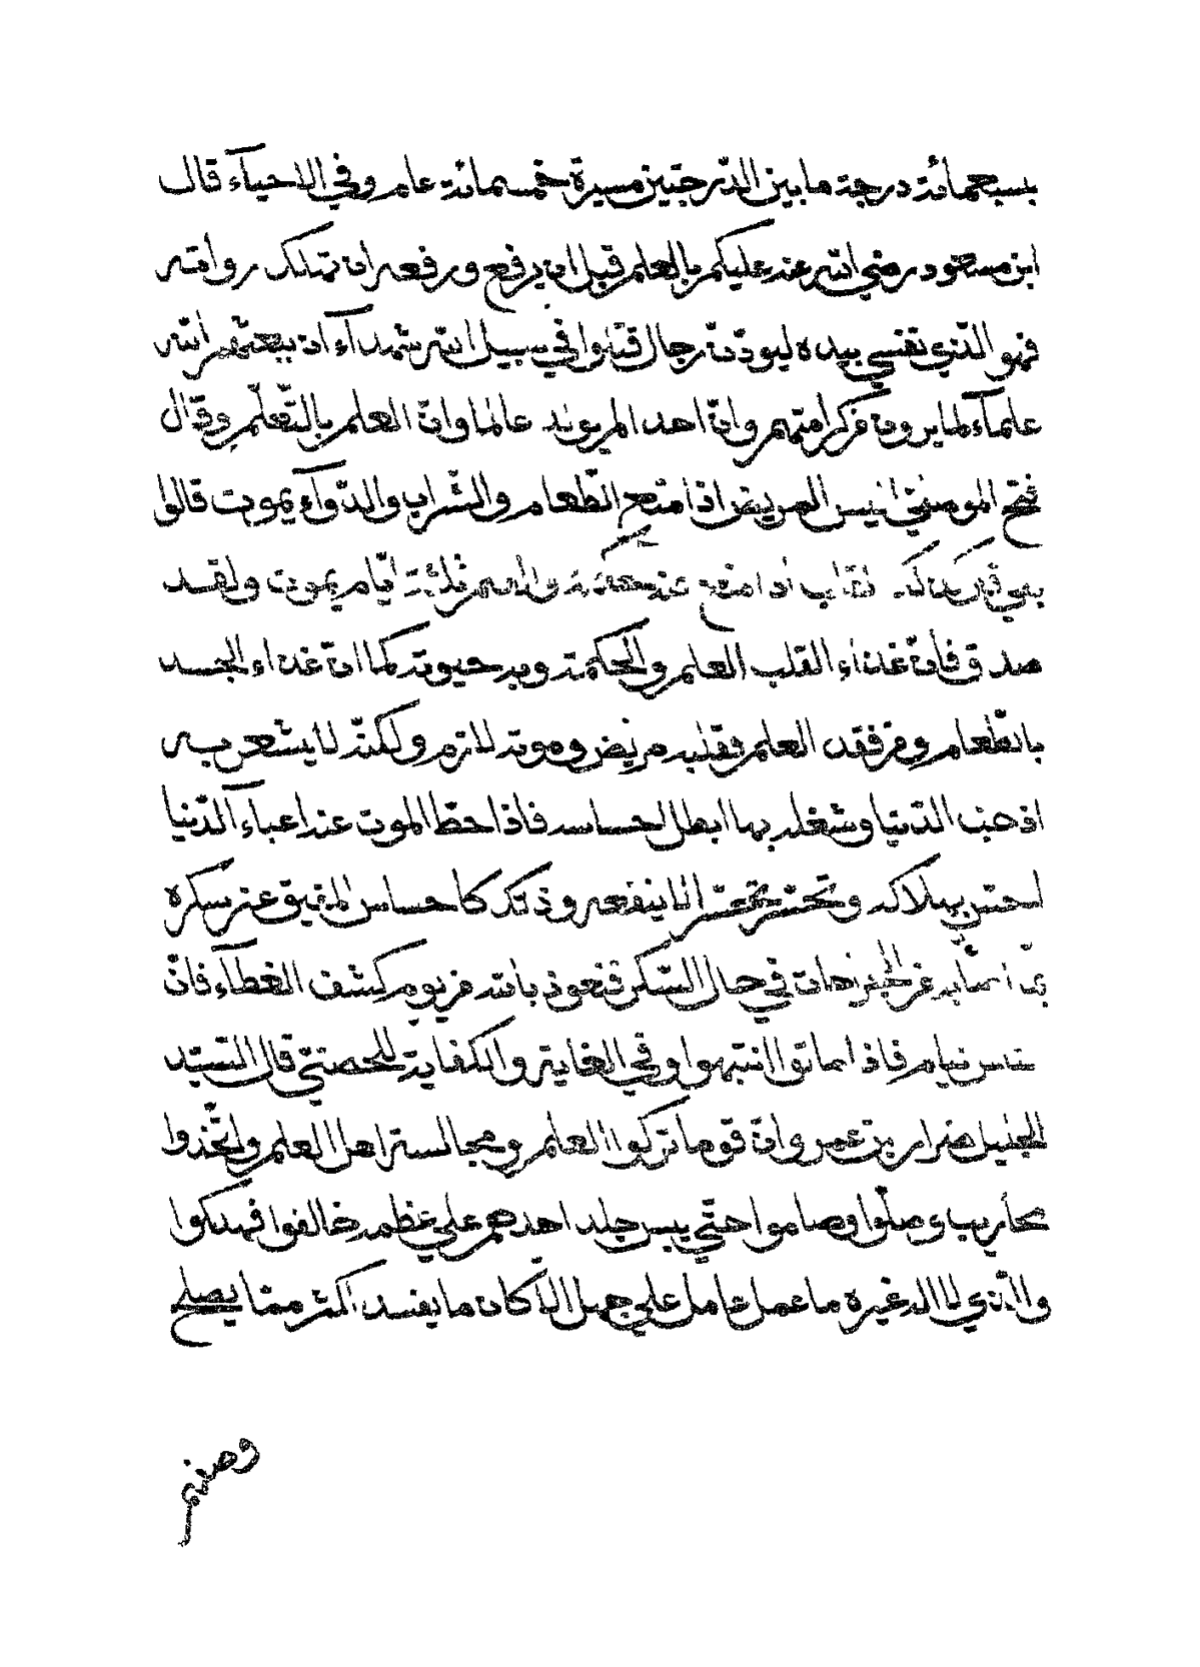 بسبعمائة درجة ما بين الدّرجتين مسيرة خمسمائة عام وفي الاحيآء قال
ابن مسعود رضي الله عنه عليكم بالعلم قبل ان يرفع ورفعه ان تهلك رواته
فهو الّذي نفسي بيده ليودّنّ رجال قتلوا في سبيل الله شهدآء ان يبعثهم الله
علمآء لما يرون من كرامتهم وانّ احدا لم يولد عالما وانّ العلم بالتّعلّم وقال
فتح الموصليّ اليس المريض اذا منع الطّعام والشّراب والدّوآء يموت قالوا
بلي قال كذلك القلب اذا منع عنه الحكمة والعلم ثلثة ايّام يموت ولقد
صدق فانّ غذاء القلب العلم والحكمة وبه حيوته كما انّ غذاء الجسد
بالطّعام ومن فقد العلم فقلبه مريض وموته لازم ولكنّه لا يشعر به
اذ حبّ الدّنيا وشغله بها ابطل احساسه فاذا حطّ الموت عنه اعباء الدّنيا
احسّ بهلاكه وتحسّر تحسّرا لا ينفعه وذلك كاحساس المفيق عن سكره
بما اصابه من الجراحات في حال السّكر فنعوذ بالله من يوم كشف الغطآء فانّ
النّاس نيام فاذا ماتوا انتبهوا وفي الغاية والكفاية للحصنيّ قال السّيّد
الجليل ضرار بن عمر وانّ قوما تركوا العلم ومجالسة اهل العلم واتّخذوا
محاريب وصلّوا وصاموا حتّي يبس جلد احدهم علي عظمه خالفوا فهلكوا
والّذي لا اله غيره ما عمل عامل علي جهل الّا كان ما يفسد اكثر ممّا يصلح